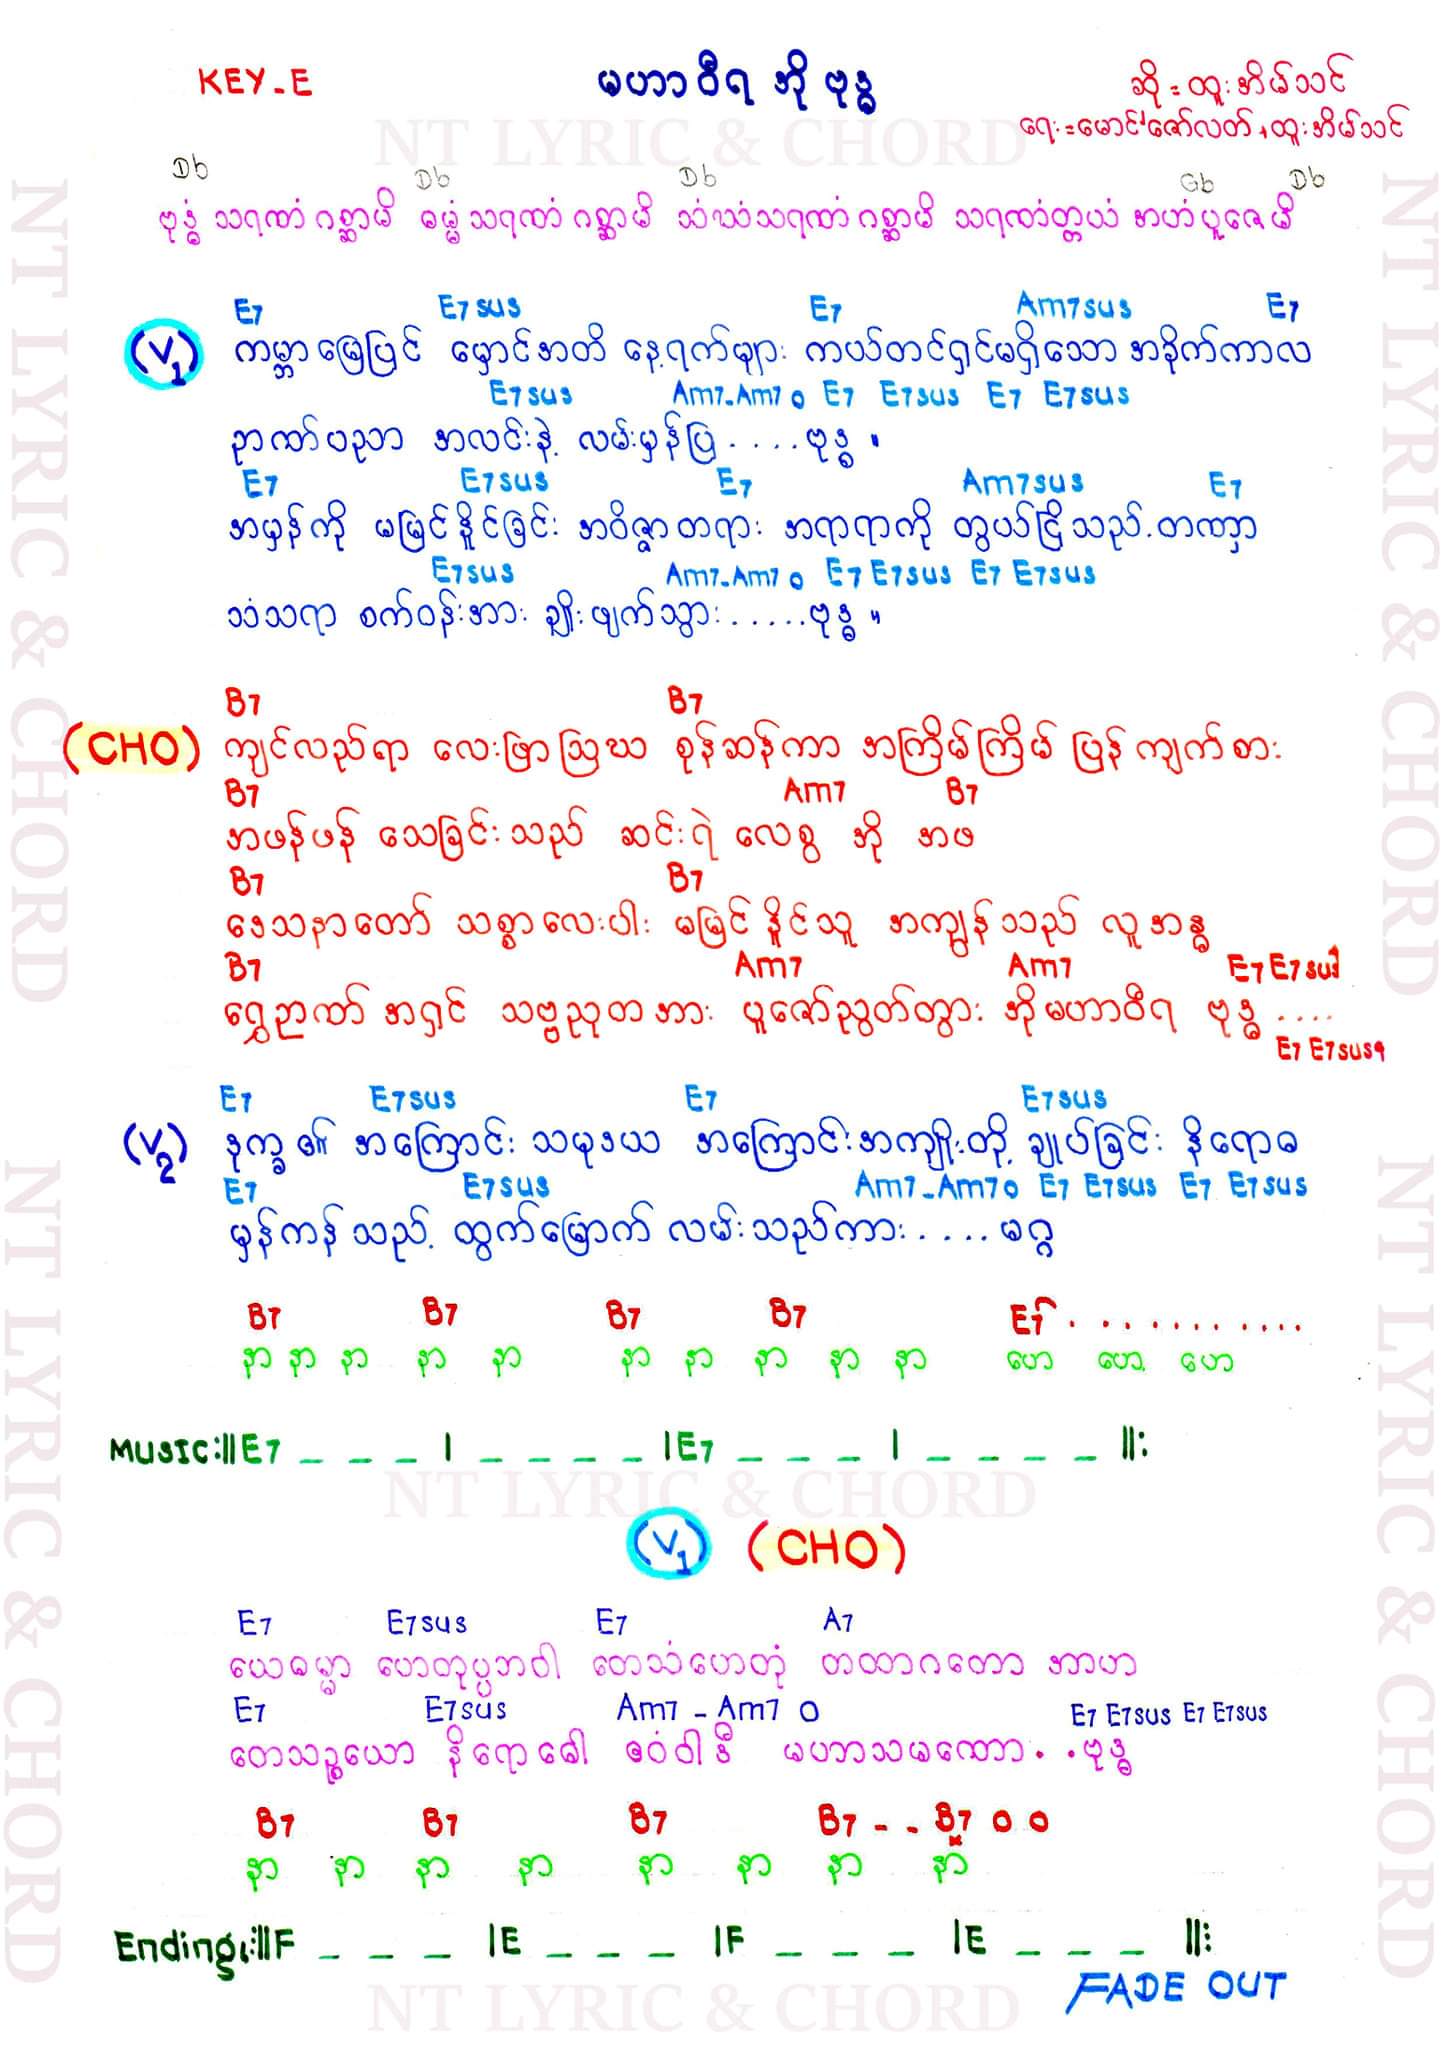 KEY-E
မဟာဝီရ အို ဗုဒ္ဓ
ဆို = ထူးအိမ်သင်
ရေး = မောင်ဇော်လတ် + ထူးအိမ်သင်
NT LYRIC & CHORD
Db Db Db Gb Db
ဗုဒ္ဓံ သရဏံ ဂစ္ဆာမိ ဓမ္မံ သရဏံ ဂစ္ဆာမိ သံဃံသရဏံ ဂစ္ဆာမိ သရဏံတ္တယံ အဟံပူဇေမိ
E7 E7sus E7 Am7sus E7
(V1) ကမ္ဘာမြေပြင် မှောင်အတိ နေ့ရက်များ ကယ်တင်ရှင်မရှိသော အခိုက်ကာလ
E7sus Am7-Am7 0 E7 E7sus E7 E7sus
ဉာဏ်ပညာ အလင်းနဲ့ လမ်းမှန်ပြ ....ဗုဒ္ဓ ။
E7 E7sus E7 Am7sus E7
အမှန်ကို မမြင်နိူင်ခြင်း အဝိဇ္ဇာတရား အရာရာကို တွယ်ငြိသည့်တဏှာ
E7sus Am7-Am7 0 E7 E7sus E7 E7sus
သံသရာ စက်ဝန်းအား ချိုးဖျက်သွား .....ဗုဒ္ဓ ။
B7 B7
(CHO) ကျင်လည်ရာ လေးဖြာဩဃ စုန်ဆန်ကာ အကြိမ်ကြိမ် ပြန်ကျက်စား
B7 Am7 B7
အဖန်ဖန် သေခြင်းသည် ဆင်းရဲ လေစွ အို အဖ
B7 B7
ဒေသနာတော် သစ္စာလေးပါး မမြင်နိူင်သူ အကျွန်သည် လူအန္ဓ
B7 Am7 Am7 E7 E7sus
ရွှေဉာဏ်အရှင် သဗ္ဗညုတအား ပူဇော်ညွတ်တွား အိုမဟာဝီရ ဗုဒ္ဓ ....
E7 E7sus
E7 E7sus E7 E7sus
(V2) ဒုက္ခ၏ အကြောင်း သမုဒယ အကြောင်းအကျိုးတို့ ချုပ်ခြင်း နိရောဓ
E7 E7sus Am7-Am7 0 E7 E7sus E7 E7sus
မှန်ကန်သည့် ထွက်မြောက် လမ်းသည်ကား .... မဂ္ဂ
B7 B7 B7 B7 E7 ............
နာ နာ နာ နာ နာ နာ နာ နာ နာ နာ ဟေ ဟေ ဟေ
MUSIC:||E7 _ _ _ | _ _ _ _ |E7 _ _ _ | _ _ _ _ ||:
NT LYRIC & CHORD
(V1) (CHO)
E7 E7sus E7 A7
ယေဓမ္မာ ဟေတုပ္ပဘဝါ တေသံဟေတုံ တထာဂတော အာဟ
E7 E7sus Am7 - Am7 0 E7 E7sus E7 E7sus
တေသဉ္စယော နိရောဓေါ ဧဝံဝါဒီ မဟာသမဏော . .ဗုဒ္ဓ
B7 B7 B7 B7 - - B7 0 0
နာ နာ နာ နာ နာ နာ နာ နာ
Ending:||F _ _ _ |E _ _ _ |F _ _ _ |E _ _ _ ||:
FADE OUT
NT LYRIC & CHORD
NT LYRIC & CHORD
NT LYRIC & CHORD
NT LYRIC & CHORD
NT LYRIC & CHORD